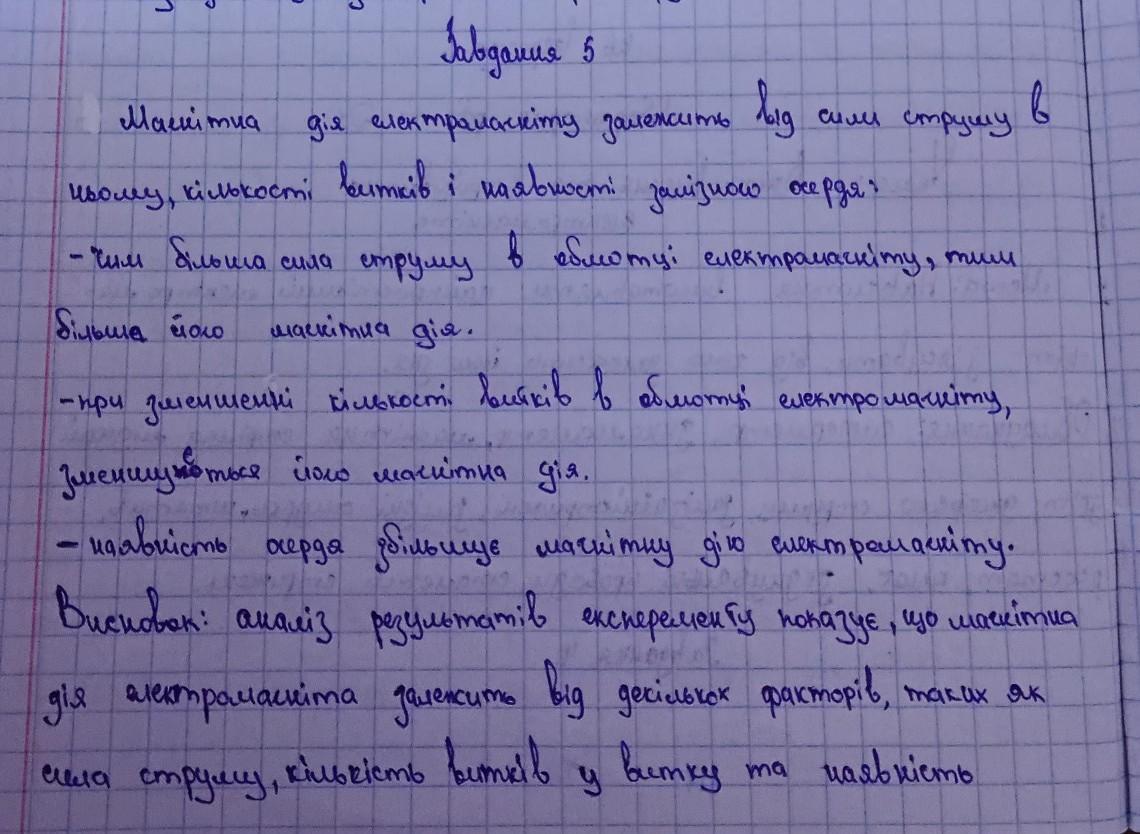 Завдання 5
Магнітна дія електромагніту залежить від сили струму в
ньому, кількості витків і наявності залізного осердя:
- Чим більша сила струму в обмотці електромагніту, тим
більша його магнітна дія.
- при зменшенні кількості витків в обмотці електромагніту,
зменшується його магнітна дія.
- наявність осердя збільшує магнітну дію електромагніту.
Висновок: аналіз результатів експеременту показує, що магнітна
дія електромагніта залежить від декількох факторів, таких як
сила струму, кількість витків у витку та наявність